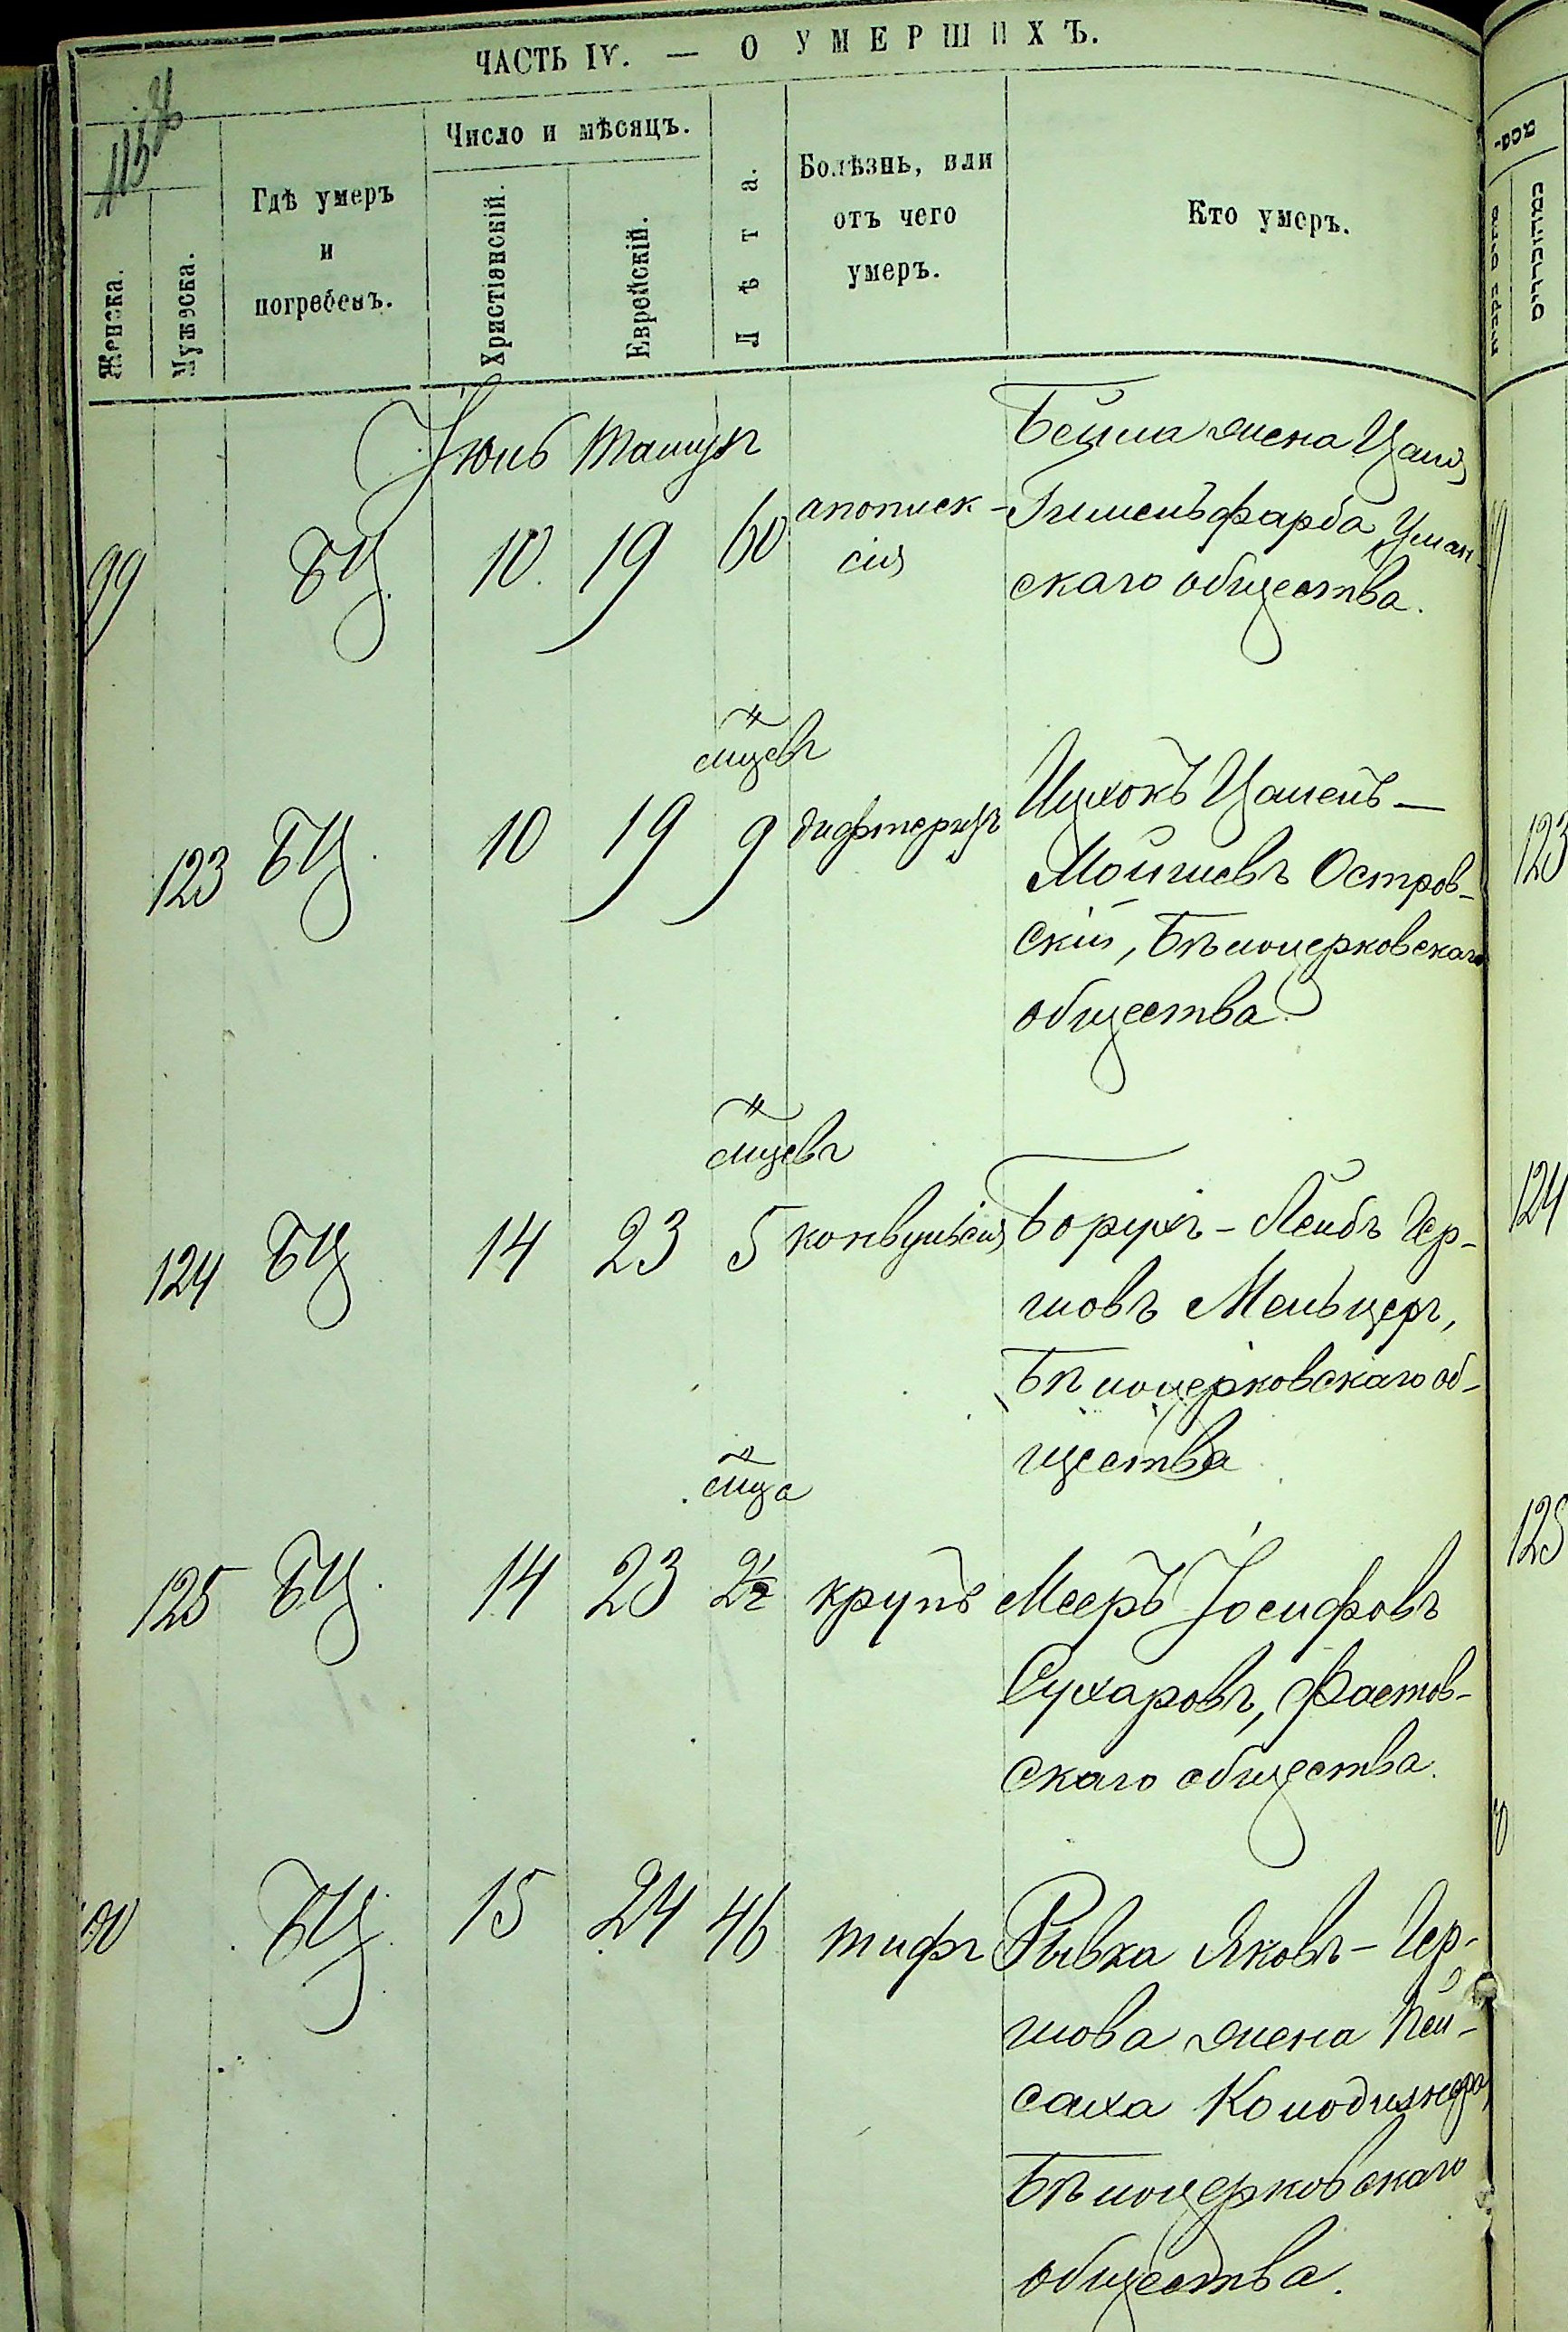 ЧАСТЬ IV. — О УМЕРШИХЪ.
Женска.
Мужеска.
Гдѣ умеръ
и
погребенъ.
Число и мѣсяцъ.
Христіанскій.
Еврейскій.
Лѣта.
Болѣзнь, или
отъ чего
умеръ.
Кто умеръ.
Іюнь Тамузъ
99 БЦ. 10. 19 60 апоплек-
сія
Бейла жена
Гимельфарба, Уман-
скаго общества.
мцевъ
123 БЦ. 10 19 9 дифтеритъ
Ицхокъ
Мошковъ Остров-
скій, Бѣлоцерковскаго
общества.
мцевъ
124 БЦ 14 23 5 конвульсія
Борухъ-Лейбъ Гер-
шовъ Мельцеръ,
Бѣлоцерковскаго об-
щества
мца
125 БЦ. 14 23 2½ крупъ
Мееръ Іосифовъ
Сухаровъ, Фастов-
скаго общества.
100 БЦ. 15 24 46 тифъ
Рывка Яковъ-Гер-
шова жена Пей-
саха
Бѣлоцерковскаго
общества.
123
124
125